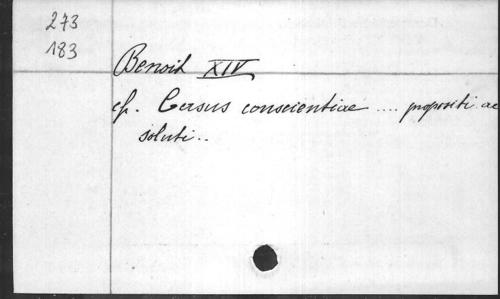 273
183
Benoit XIV
cf. Casus conscientiae .... propositi ac
soluti..